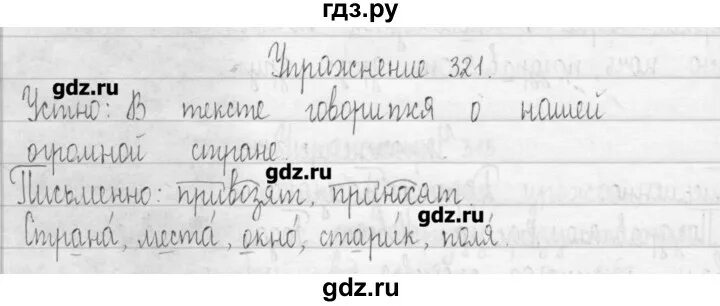 гдз.ру
Упражнение 321.
gdz.ru
Устно: В тексте говорится о нашей
огромной стране.
Письменно: привозят, приносят.
gdz.ru
Страна́, места́, окно́, стари́к, поля́.
gdz.ru